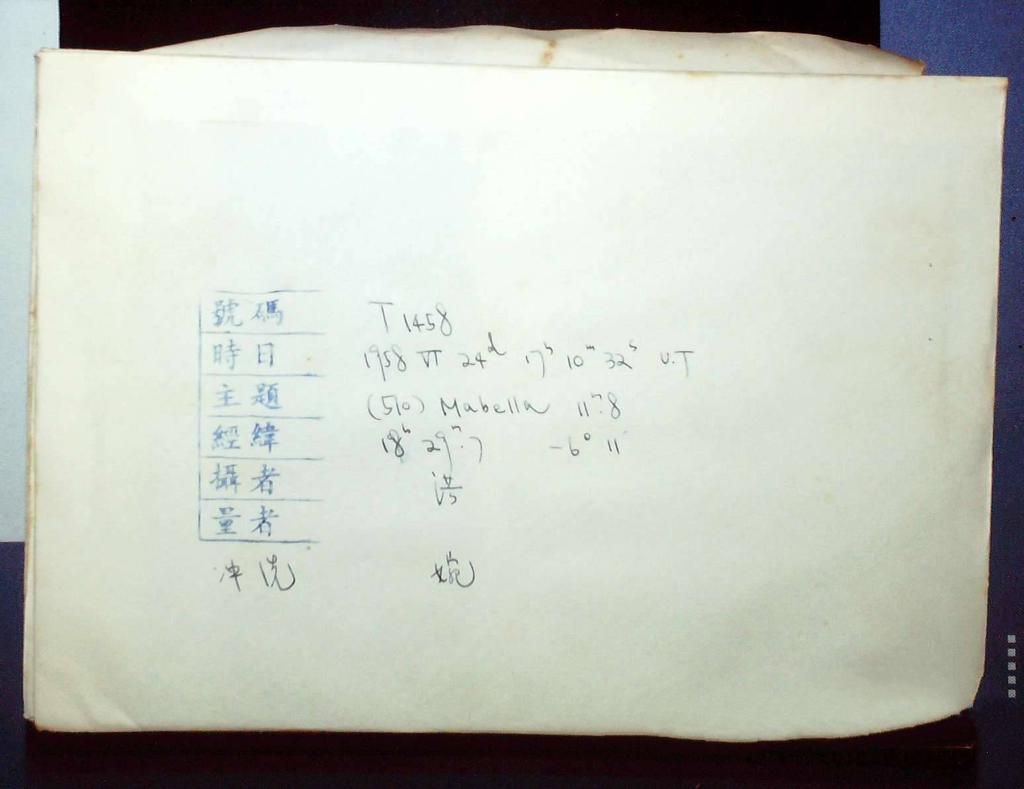 號碼 T 1458
時日 1958 VI 24ᵈ 17ʰ 10ᵐ 32ˢ U.T
主題 (510) Mabella 11ᵐ.8
經緯 18ʰ 29ᵐ.7 -6° 11'
攝者 洪
量者
冲洗 婉